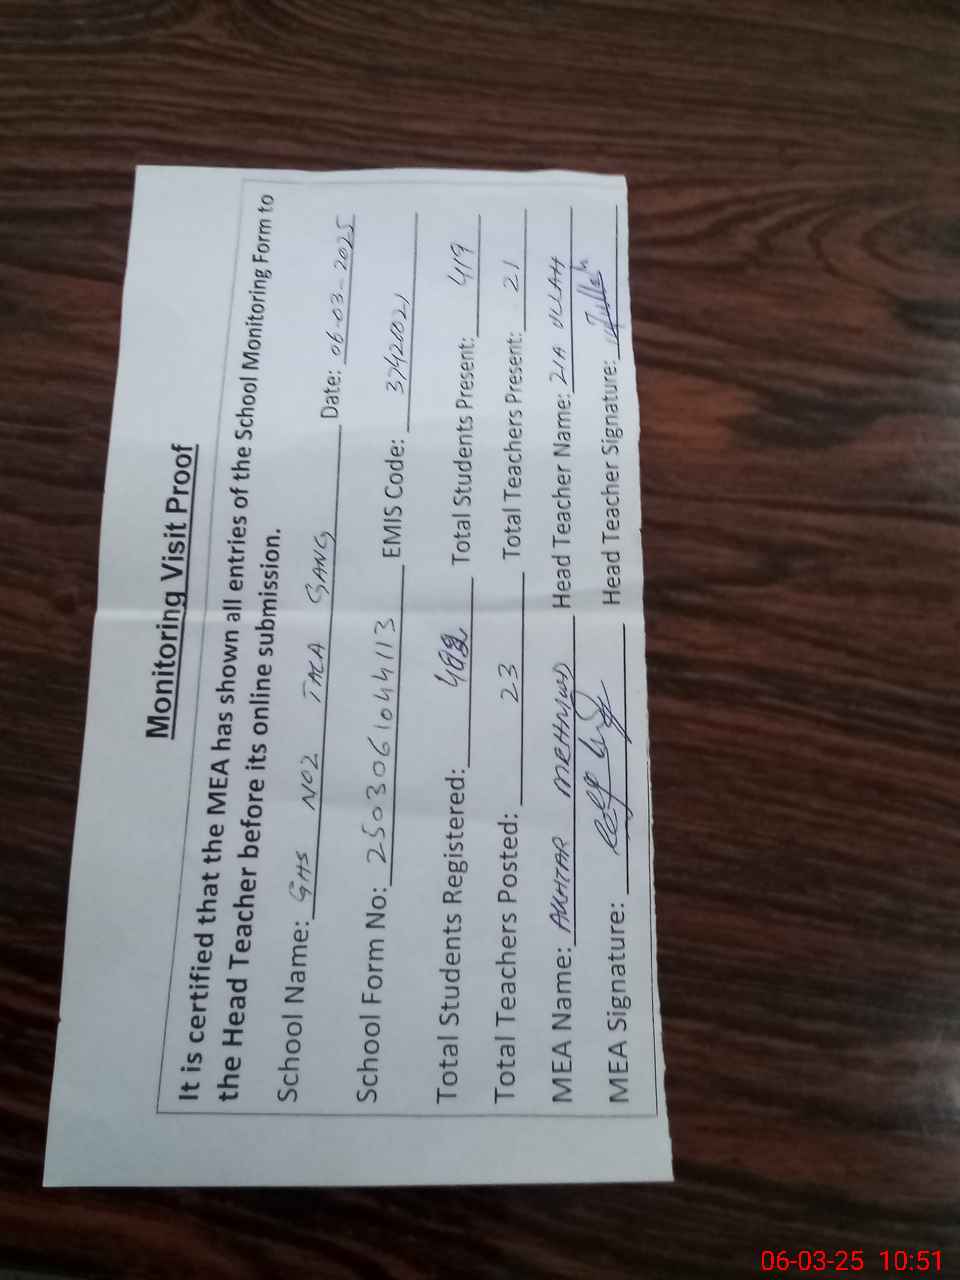 Monitoring Visit Proof
It is certified that the MEA has shown all entries of the School Monitoring Form to
the Head Teacher before its online submission.
School Name: GHS NO2 TALA GANG Date: 06-03-2025
School Form No: 2503061044113 EMIS Code: 37420021
Total Students Registered: Total Students Present: 419
Total Teachers Posted: 23 Total Teachers Present: 21
MEA Name: AKHTAR MEHMUD Head Teacher Name: ZIA ULLAH
MEA Signature: Head Teacher Signature:
06-03-25 10:51